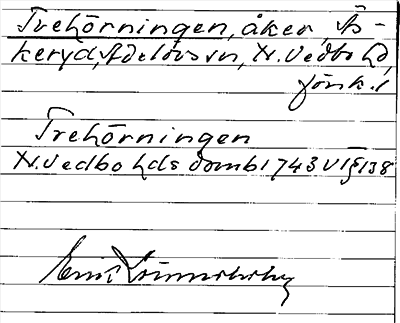 Trehörningen, åker, Äs-
keryd, Adelövs sn, N. Vedbo hd,
Jönk. l
Trehörningen
N. Vedbo hds domb 1743 VI § 138